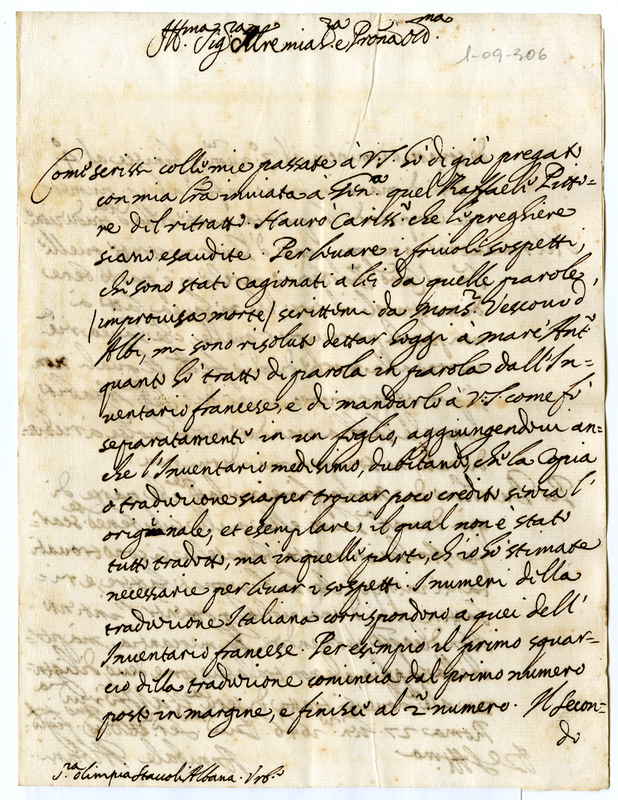 Ill.ma Sig.ra Sig.ra e Pron̄a Oss.ma
1-09-306
Come scrissi colle mie passate à V.S. hò di già pregato
con mia lrã inviata à quel Raffaelle Pitto=
re del ritratto Mauro Cariss.o che le preghiere
siano esaudite. Per levare i frivoli sospetti,
che sono stati cagionati à lei da quelle parole
/improvisa morte/ scritteni da Mons.r Vescovo d'
Albi, mi sono risoluto dettar hoggi à marc'Ant.o
quanto hò tratto di parola in parola dall'In=
ventario francese, e di mandarlo à V.S. come fò
separatamente in un foglio, aggiungendovi an=
che l'Inventario medesimo, dubitando, che la Copia
ò traduzione sia per trovar poco credito senza l'
originale, et esemplare, il qual non è stato
tutto tradotto, mà in quelle parti, ch'io hò stimate
necessarie per levar i sospetti. I numeri della
traduzione Italiana corrispondono à quei dell'
Inventario francese. Per esempio il primo squar=
cio della traduzione comincia dal primo numero
posto in margine, e finisce al 2.o numero. Il Secon=
do
S.ra Olimpia Staccoli Albana. Urb.o